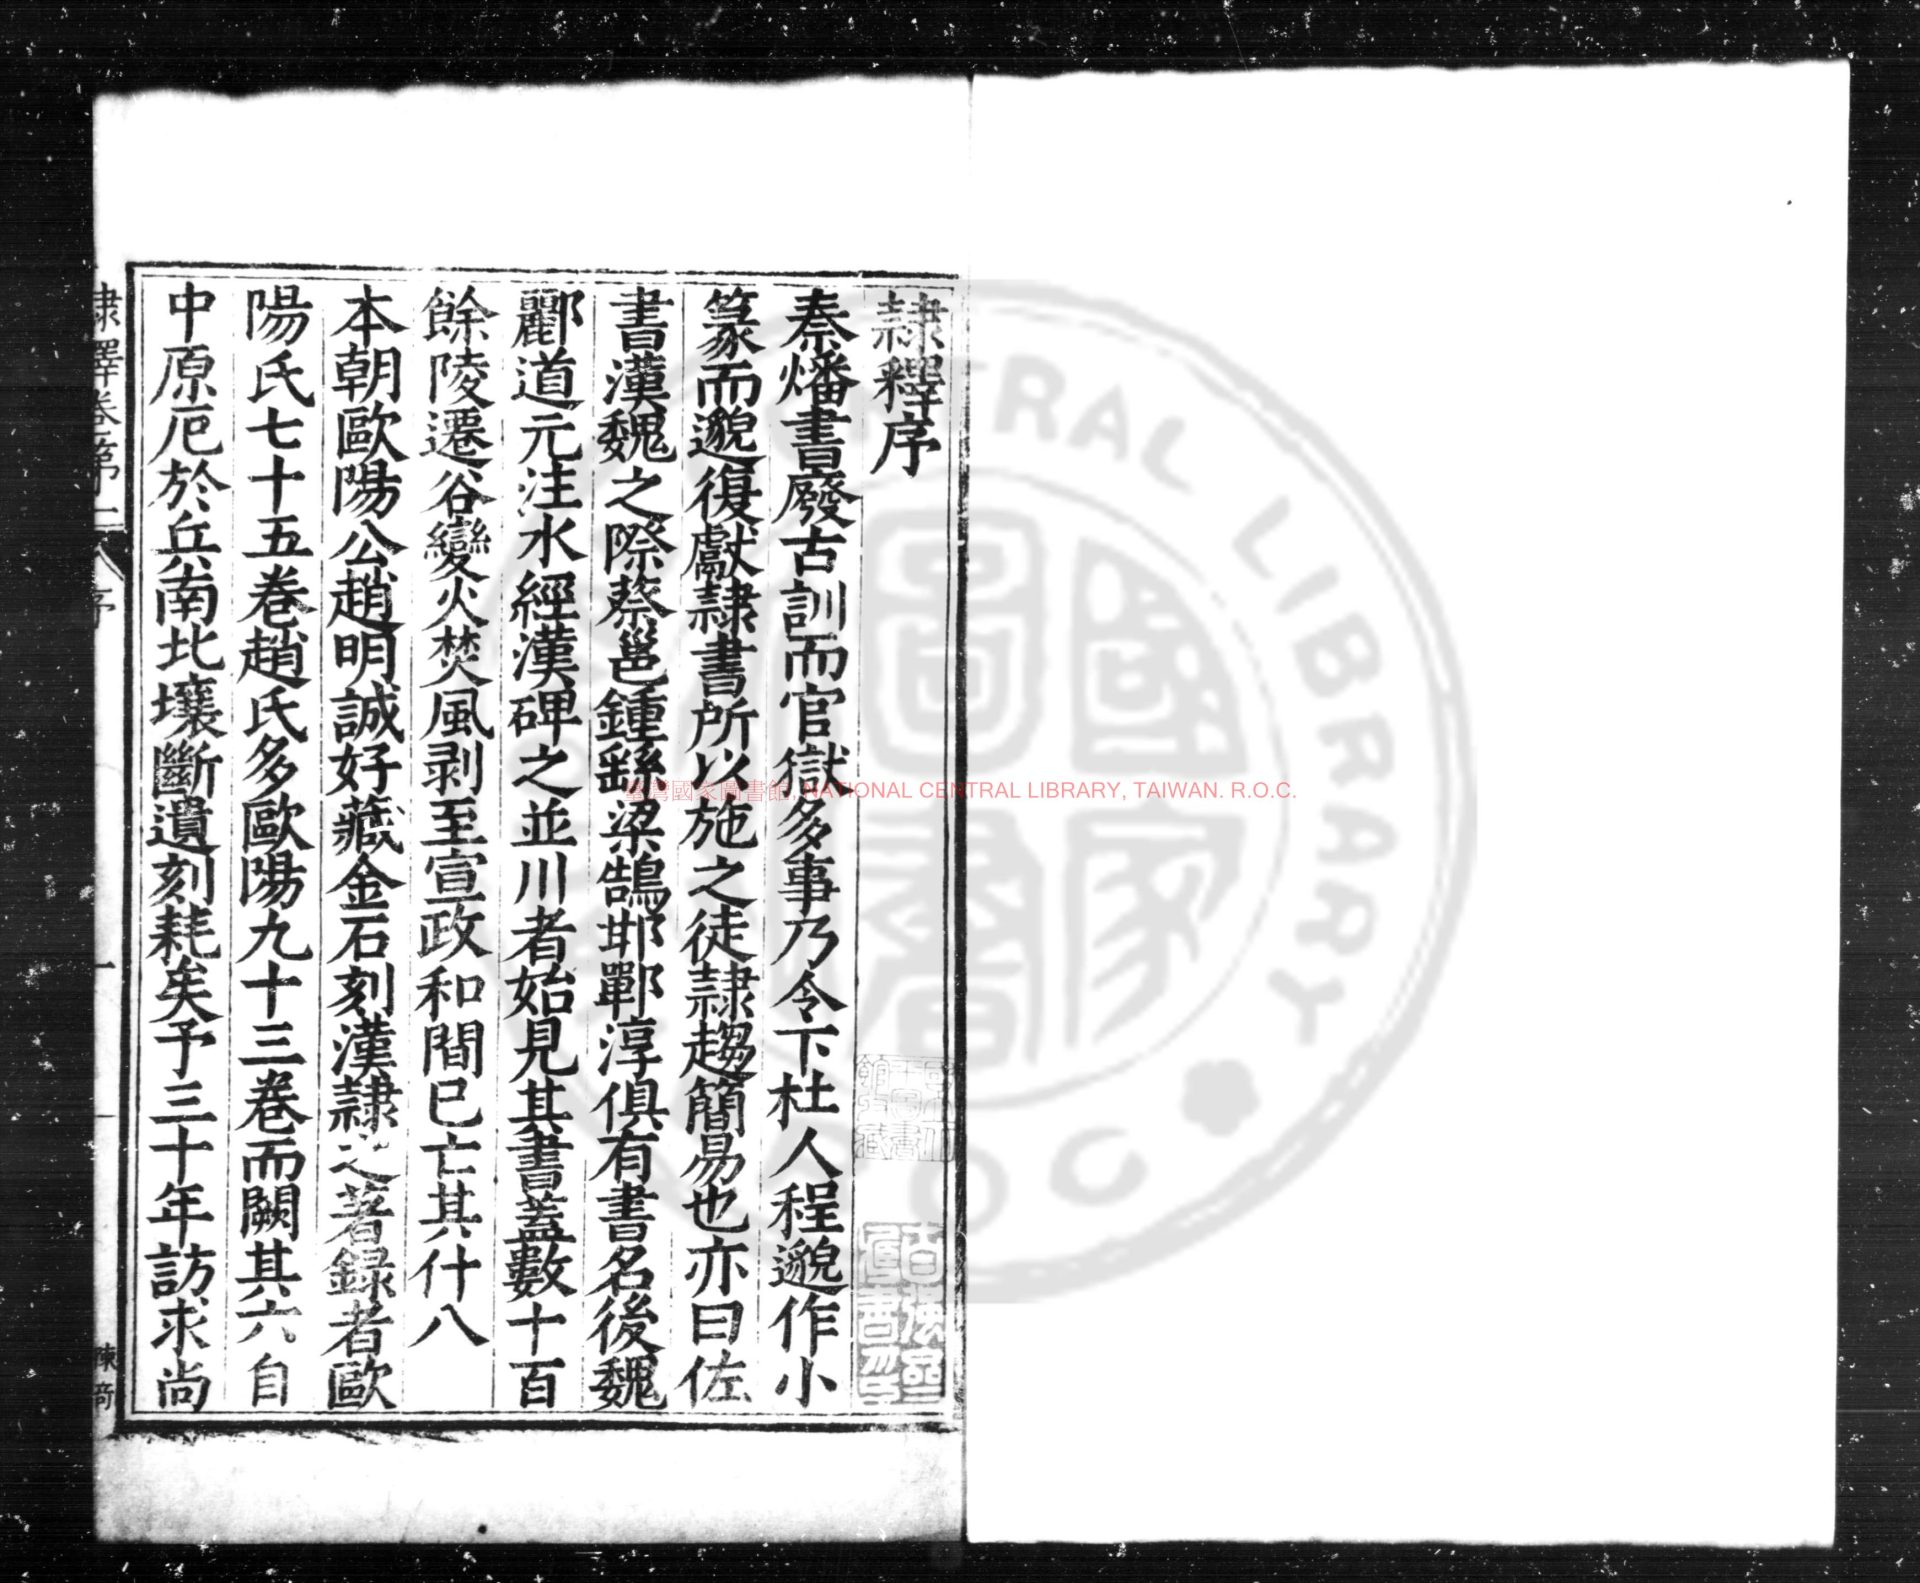 隷釋序
秦燔書廢古訓而官獄多事乃令下杜人程邈作小
篆而邈復獻隷書所以施之徒隷趨簡易也亦曰佐
書漢魏之際蔡邕鍾繇梁鵠邯鄲淳俱有書名後魏
酈道元注水經漢碑之並川者始見其書蓋數十百
餘陵遷谷變火焚風剥至宣政和間已亡其什八
本朝歐陽公趙明誠好藏金石刻漢隷之著録者歐
陽氏七十五巻趙氏多歐陽九十三巻而闕其六自
中原厄於兵南北壤斷遺刻耗矣予三十年訪求尚
隷釋卷第一 序
一
臺灣國家圖書館, NATIONAL CENTRAL LIBRARY, TAIWAN. R.O.C.
CENTRAL LIBRARY
國家圖書
R.O.C.